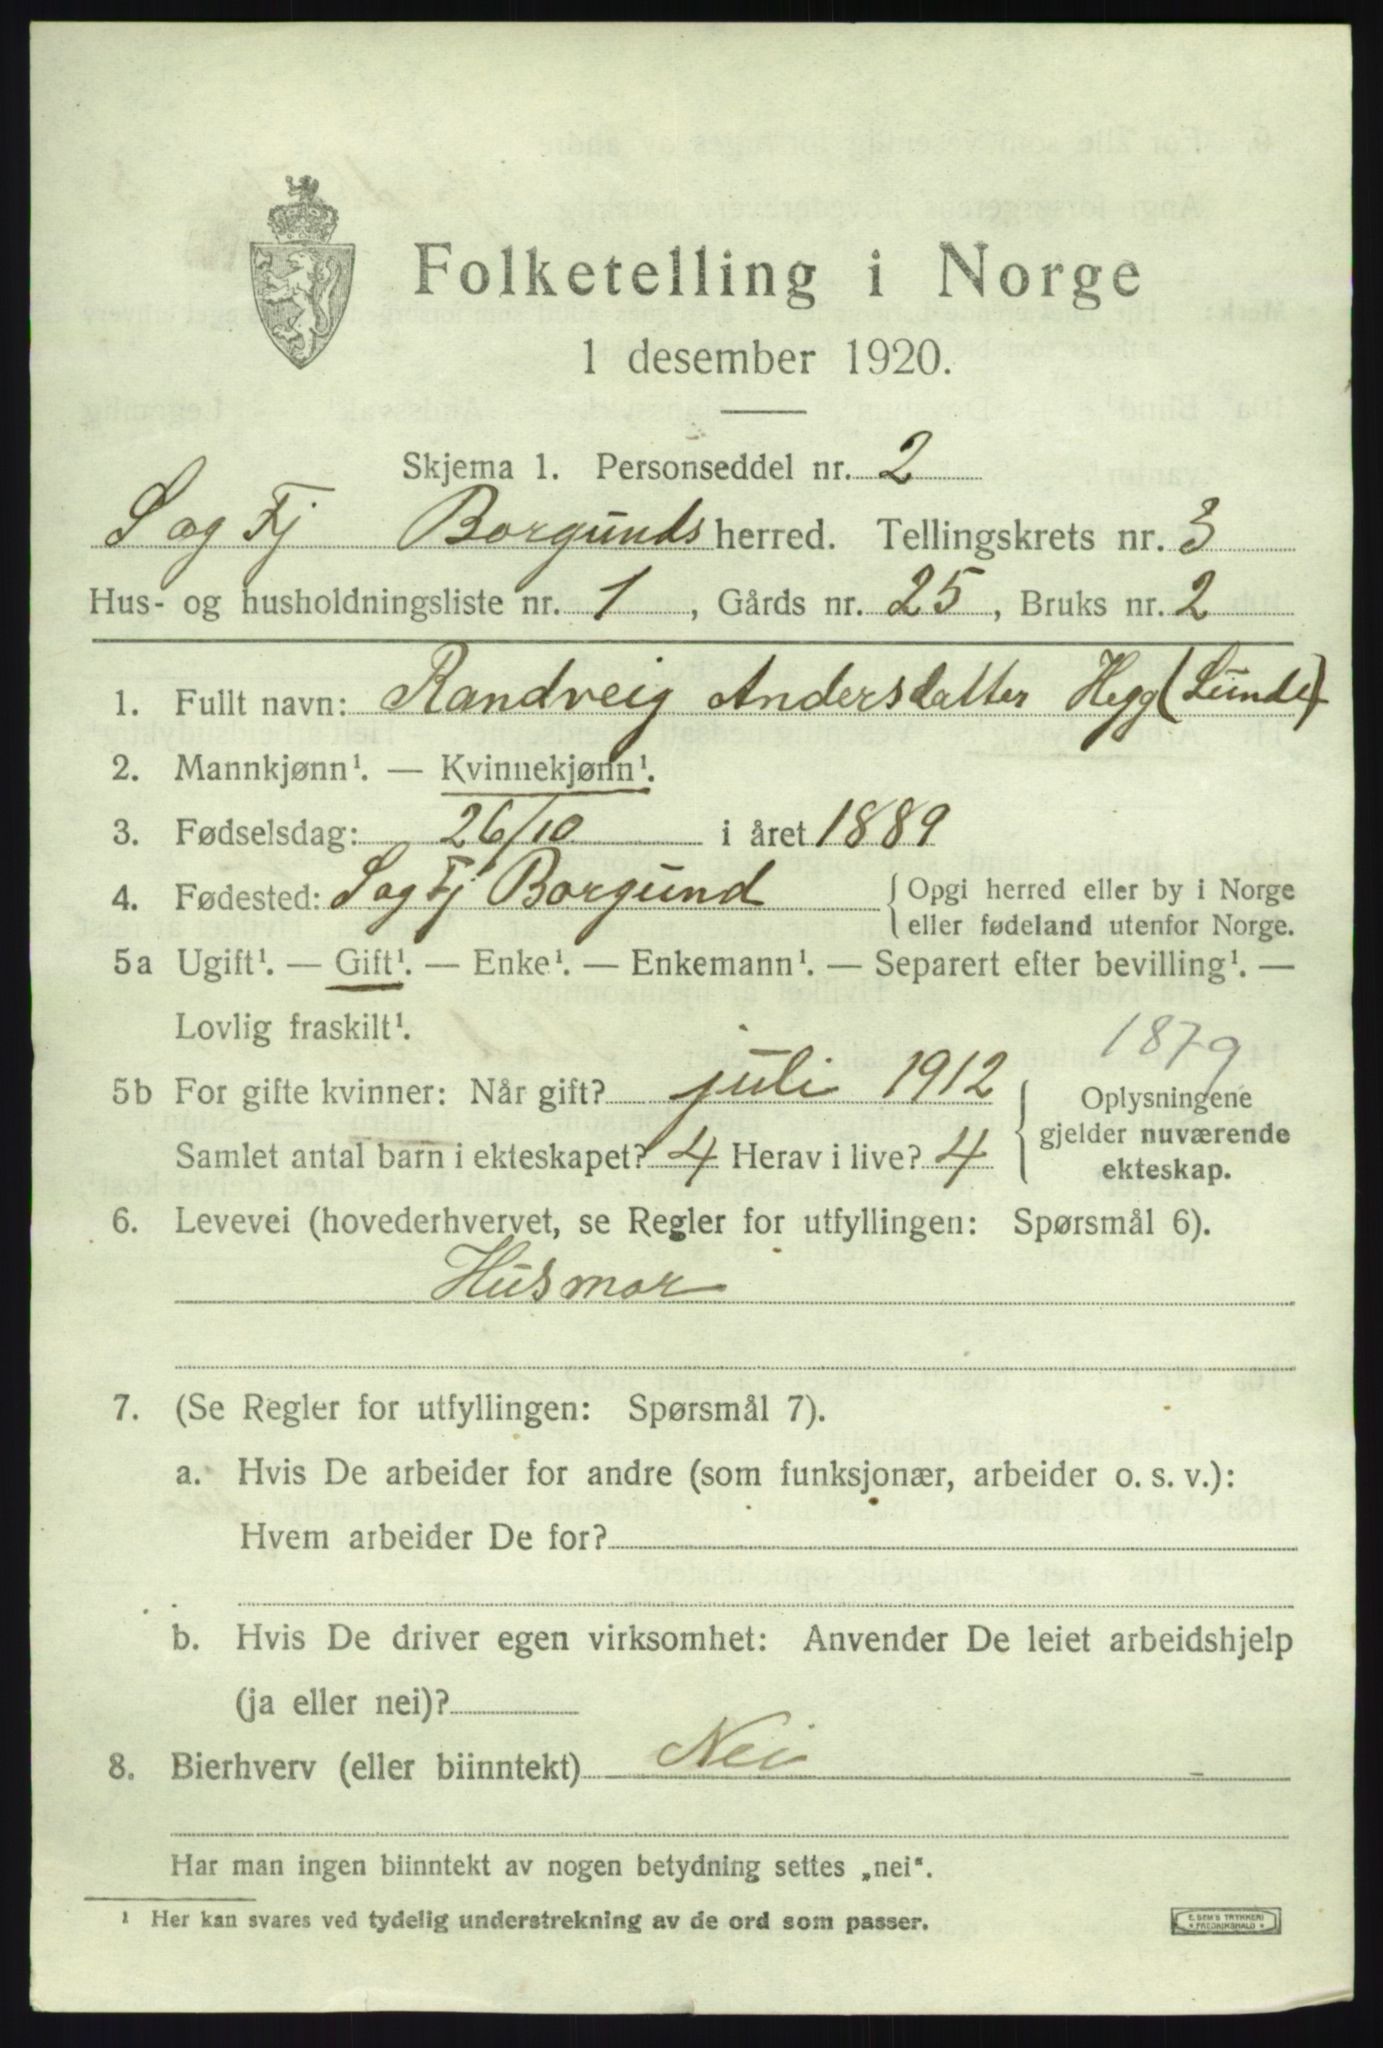 Folketelling i Norge
1 desember 1920.
Skjema 1. Personseddel nr. 2
S og Fj Borgunds herred. Tellingskrets nr. 3
Hus- og husholdningsliste nr. 1, Gårds nr. 25, Bruks nr. 2
1. Fullt navn: Randveig Andersdatter Hegg (Lunde)
2. Mannkjønn¹. — Kvinnekjønn¹.
3. Fødselsdag: 26/10 i året 1889
4. Fødested: S og Fj Borgund {Opgi herred eller by i Norge
eller fødeland utenfor Norge.
5a Ugift¹. — Gift¹. — Enke¹. — Enkemann¹. — Separert efter bevilling¹. —
Lovlig fraskilt¹.
1879
5b For gifte kvinner: Når gift? juli 1912
Samlet antal barn i ekteskapet? 4 Herav i live? 4
Oplysningene
gjelder nuværende
ekteskap.
6. Levevei (hovederhvervet, se Regler for utfyllingen: Spørsmål 6).
Husmor
7. (Se Regler for utfyllingen: Spørsmål 7).
a. Hvis De arbeider for andre (som funksjonær, arbeider o. s. v.):
Hvem arbeider De for?
b. Hvis De driver egen virksomhet: Anvender De leiet arbeidshjelp
(ja eller nei)?
8. Bierhverv (eller biinntekt) Nei
Har man ingen biinntekt av nogen betydning settes „nei“.
¹ Her kan svares ved tydelig understrekning av de ord som passer.
E. SEM'S TRYKKERI
* FREDRIKSHALD *